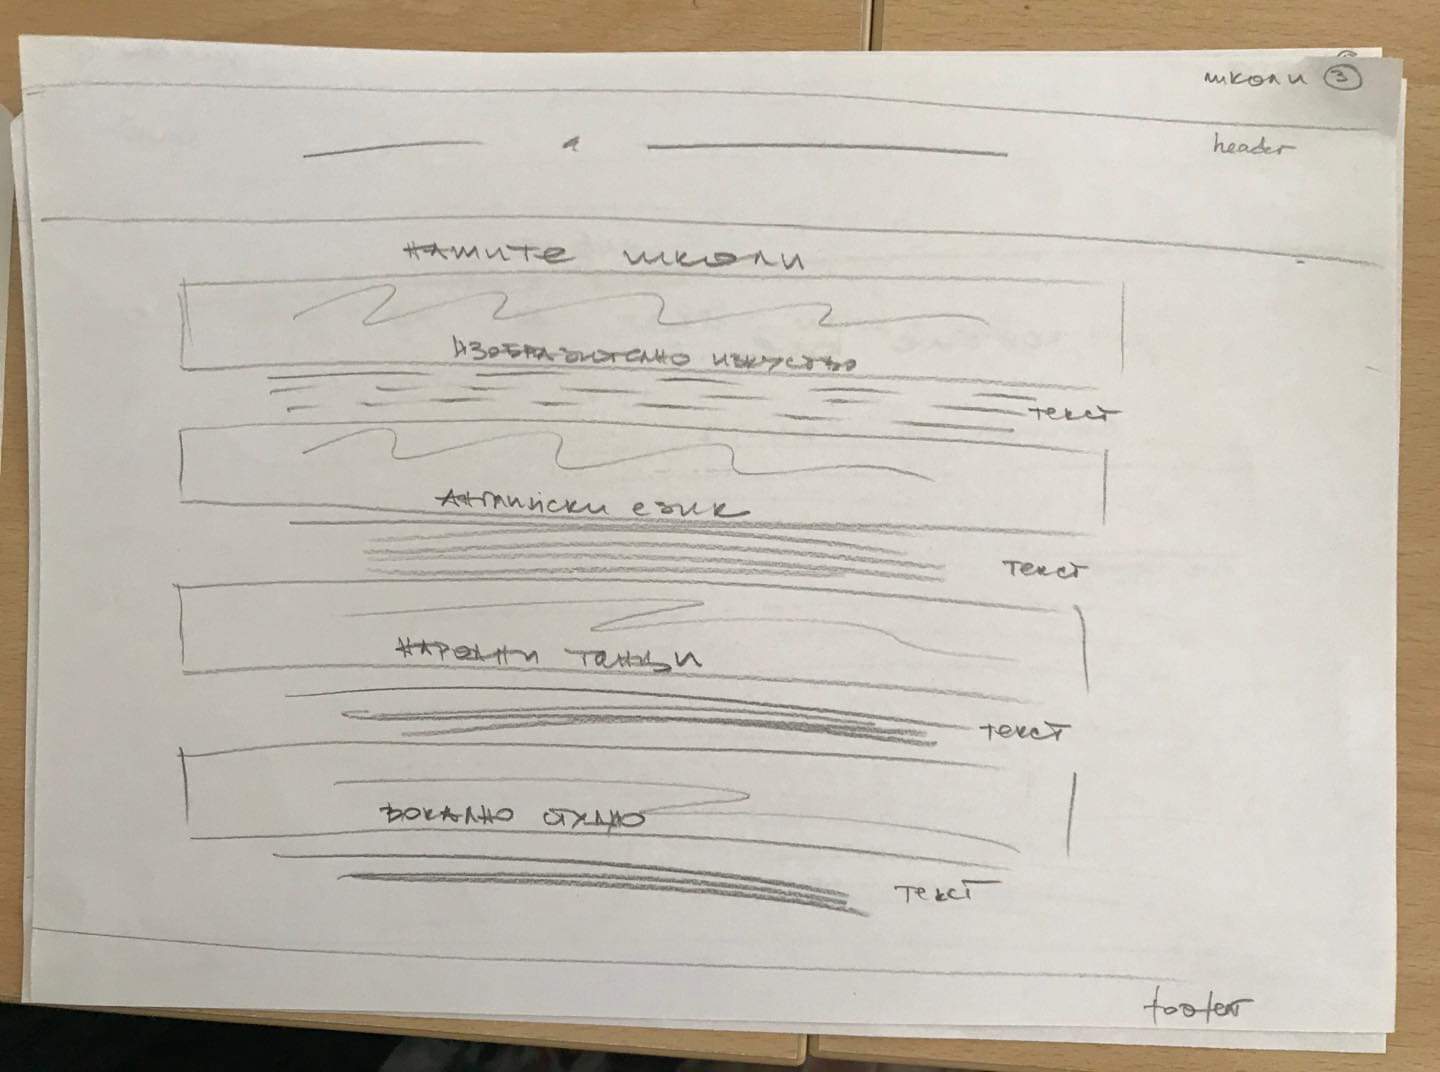 школи ③
header
a
НАШИТЕ школи
ИЗОБРАЗИТЕЛНО ИЗКУСТВО
текст
Английски език
текст
НАРОДНИ ТАНЦИ
текст
ВОКАЛНО студио
текст
footer